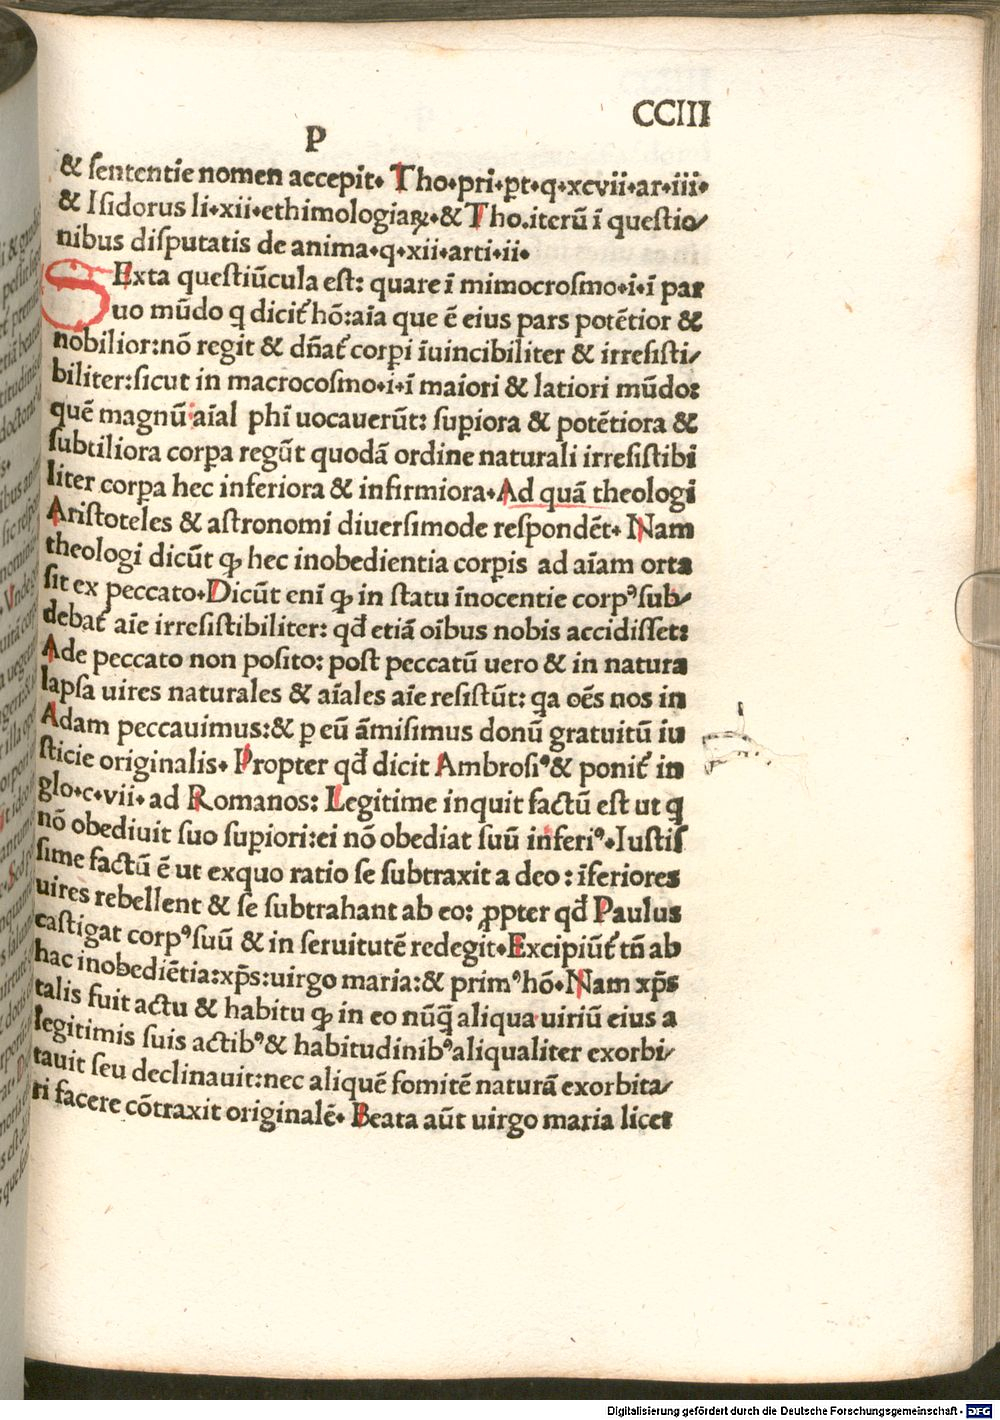 CCIII
P
& ſententie nomen accepit⁕ Tho⁕pri⁕pt⁕q⁕xcvii⁕ar⁕iii⁕
& Iſidorus li⁕xii⁕ethimologiaꝝ⁕& Tho.iterū ī queſtio/
nibus diſputatis de anima⁕q⁕xii⁕arti⁕ii⁕
SExta queſtiūcula eſt: quare ī mimocroſmo⁕i⁕ī par
uo mūdo q dicit́ hō:aīa que ē eius pars potētior &
nobilior:nō regit & dn̄at́ corpi īuincibiliter & irreſiſti/
biliter:ſicut in macrocoſmo⁕i⁕ī maiori & latiori mūdo:
quē magnū aīal phi uocauerūt: ſupiora & potētiora &
ſubtiliora corpa regūt quodā ordine naturali irreſiſtibi
liter corpa hec inferiora & infirmiora⁕Ad quā theologi
Ariſtoteles & aſtronomi diuerſimode reſpondēt⁕ Nam
theologi dicūt ꝙ hec inobedientia corpis ad aīam orta
ſit ex peccato⁕Dicūt enī ꝙ in ſtatu īnocentie corpꝰſub/
debat́ aīe irreſiſtibiliter: qđ etiā oībus nobis accidiſſet:
Ade peccato non poſito: poſt peccatū uero & in natura
lapſa uires naturales & aīales aīe reſiſtūt: qa oēs nos in
Adam peccauimus:& p eū āmiſimus donū gratuitū iu
ſticie originalis⁕ Propter qđ dicit Ambroſiꝰ& ponit́ in
glo⁕c⁕vii⁕ad Romanos: Legitime inquit factū eſt ut q
nō obediuit ſuo ſupiori:ei nō obediat ſuū inferiꝰ⁕Iuſtiſ
ſime factū ē ut exquo ratio ſe ſubtraxit a deo : īferiores
uires rebellent & ſe ſubtrahant ab eo: ꝓpter qđ Paulus
caſtigat corpꝰſuū & in ſeruitutē redegit⁕Excipiūt́ tn̄ ab
hac inobediētia:xp̄s:uirgo maria:& primꝰhō⁕Nam xp̄s
talis fuit actu & habitu ꝙ in eo nūq̄ aliqua uiriū eius a
legitimis ſuis actibꝰ& habitudinibꝰaliqualiter exorbi/
tauit ſeu declinauit:nec aliquē fomitē naturā exorbita/
ri facere cōtraxit originalē⁕ Beata aūt uirgo maria licet
Digitalisierung gefördert durch die Deutsche Forschungsgemeinschaft - DFG